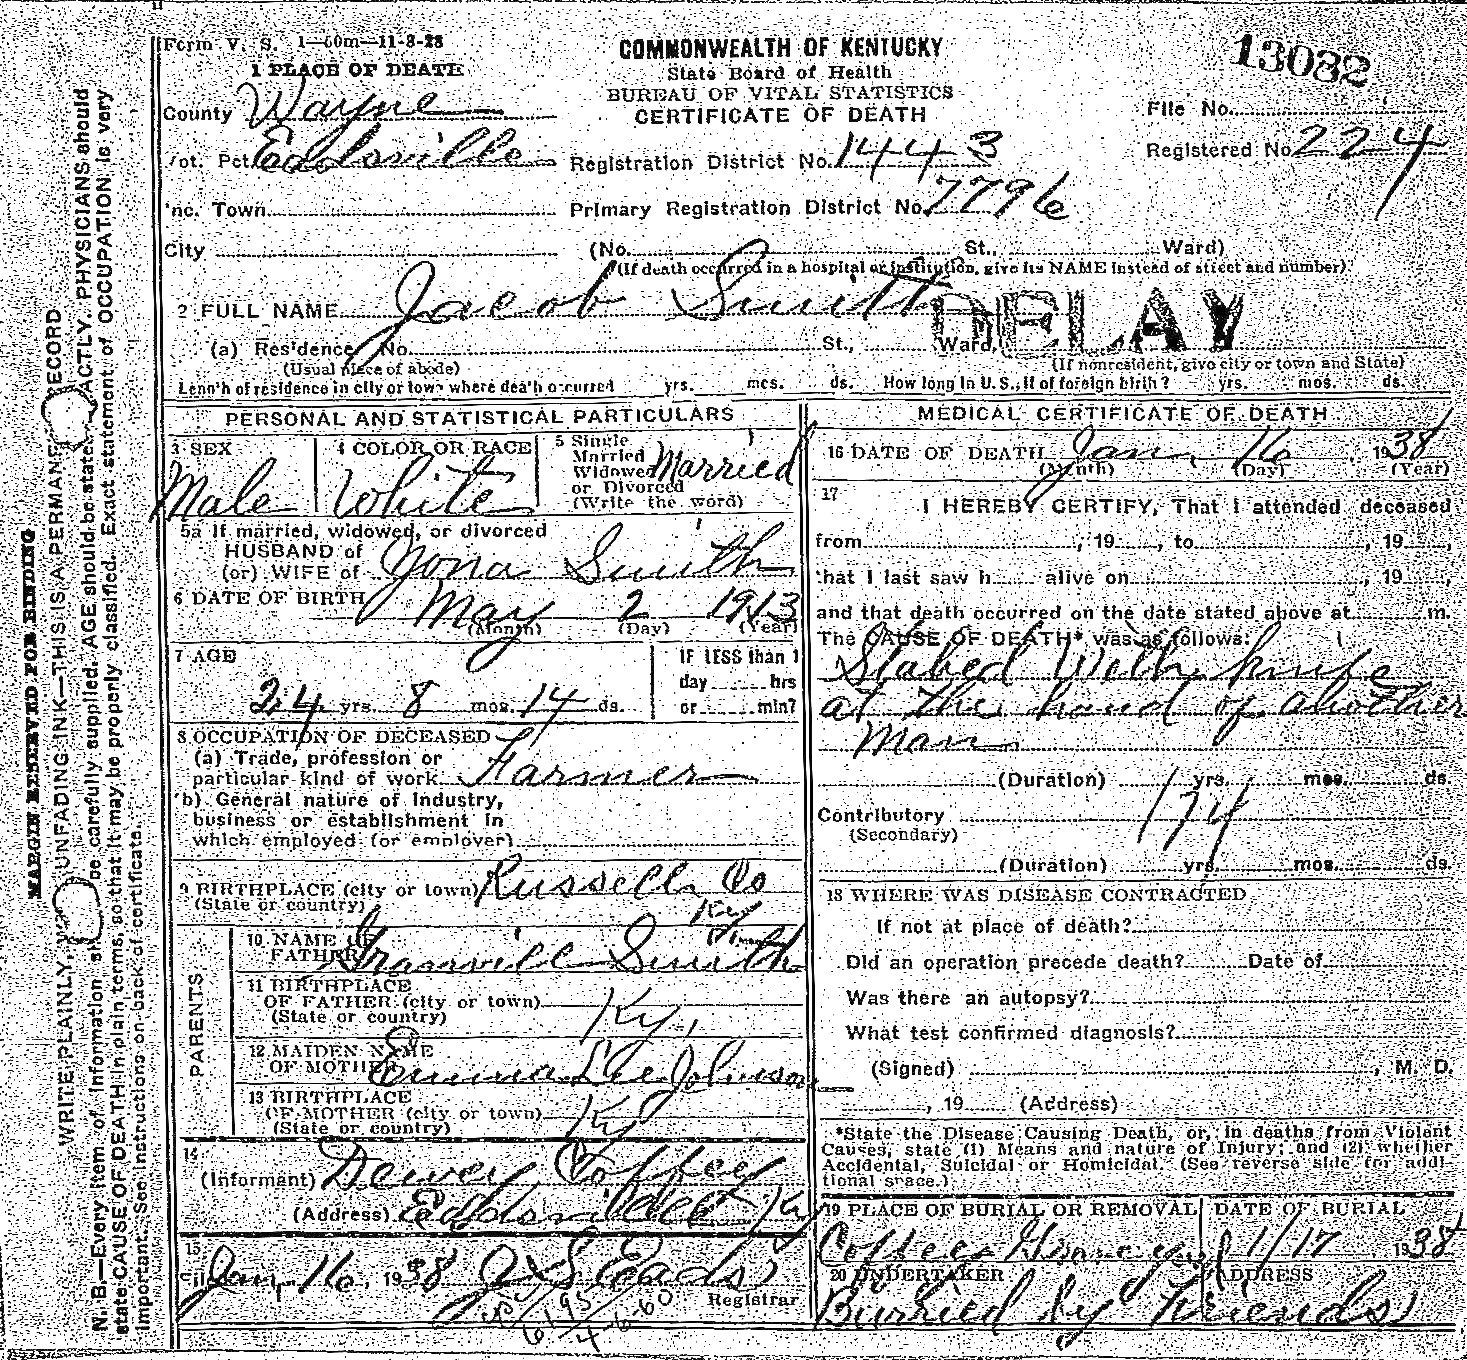 Form V. S. 1—60m—11-8-28
COMMONWEALTH OF KENTUCKY
State Board of Health
BUREAU OF VITAL STATISTICS
CERTIFICATE OF DEATH
13082
File No.
Registered No. 224
1 PLACE OF DEATH
County Wayne
Vot. Pct. Eadsville
Registration District No. 1443
Inc. Town
Primary Registration District No. 7796
City (No. St., Ward)
(If death occurred in a hospital or institution, give its NAME instead of street and number)
2 FULL NAME Jacob Smith
DELAY
(a) Residence No. St., Ward,
(Usual place of abode) (If nonresident, give city or town and State)
Length of residence in city or town where death occurred yrs. mos. ds. How long in U. S., if of foreign birth? yrs. mos. ds.
PERSONAL AND STATISTICAL PARTICULARS
3 SEX
Male
4 COLOR OR RACE
White
5 Single
Married
Widowed
or Divorced
(Write the word)
Married
5a If married, widowed, or divorced
HUSBAND of
(or) WIFE of
Smith
6 DATE OF BIRTH May 2 1913
(Month) (Day) (Year)
7 AGE
24 yrs. 8 mos. 14 ds.
IF LESS than 1
day hrs
or min?
8 OCCUPATION OF DECEASED
(a) Trade, profession or
particular kind of work Farmer
(b) General nature of industry,
business or establishment in
which employed (or employer)
9 BIRTHPLACE (city or town) Russell Co
(State or country) Ky
PARENTS
10 NAME OF
FATHER Granville Smith
11 BIRTHPLACE
OF FATHER (city or town)
(State or country) Ky.
12 MAIDEN NAME
OF MOTHER Emma Lee Johnson
13 BIRTHPLACE
OF MOTHER (city or town)
(State or country) Ky
14
(Informant) Dewey Coffey
(Address) Eadsville Ky
15
Filed Jan. 16, 1938 Eads
Registrar
MEDICAL CERTIFICATE OF DEATH
16 DATE OF DEATH Jan. 16 1938
(Month) (Day) (Year)
17
I HEREBY CERTIFY, That I attended deceased
from , 19 , to , 19 ,
that I last saw h alive on , 19 ,
and that death occurred on the date stated above at m.
The CAUSE OF DEATH* was as follows:
Stabed With knife
at the hand of another
Man
(Duration) yrs. mos. ds.
174
Contributory
(Secondary)
(Duration) yrs. mos. ds.
18 WHERE WAS DISEASE CONTRACTED
If not at place of death?
Did an operation precede death? Date of
Was there an autopsy?
What test confirmed diagnosis?
(Signed) , M. D.
, 19 (Address)
*State the Disease Causing Death, or, in deaths from Violent
Causes, state (1) Means and nature of Injury; and (2) whether
Accidental, Suicidal or Homicidal. (See reverse side for addi-
tional space.)
19 PLACE OF BURIAL OR REMOVAL DATE OF BURIAL
Coffee Grave yard 1/17 1938
20 UNDERTAKER ADDRESS
Burried by Friends
MARGIN RESERVED FOR BINDING
WRITE PLAINLY, UNFADING INK—THIS IS A PERMANENT RECORD
N. B.—Every item of information be carefully supplied. AGE should be stated EXACTLY. PHYSICIANS should
state CAUSE OF DEATH in plain terms, so that it may be properly classified. Exact statement of OCCUPATION is very
important. See instructions on back of certificate.